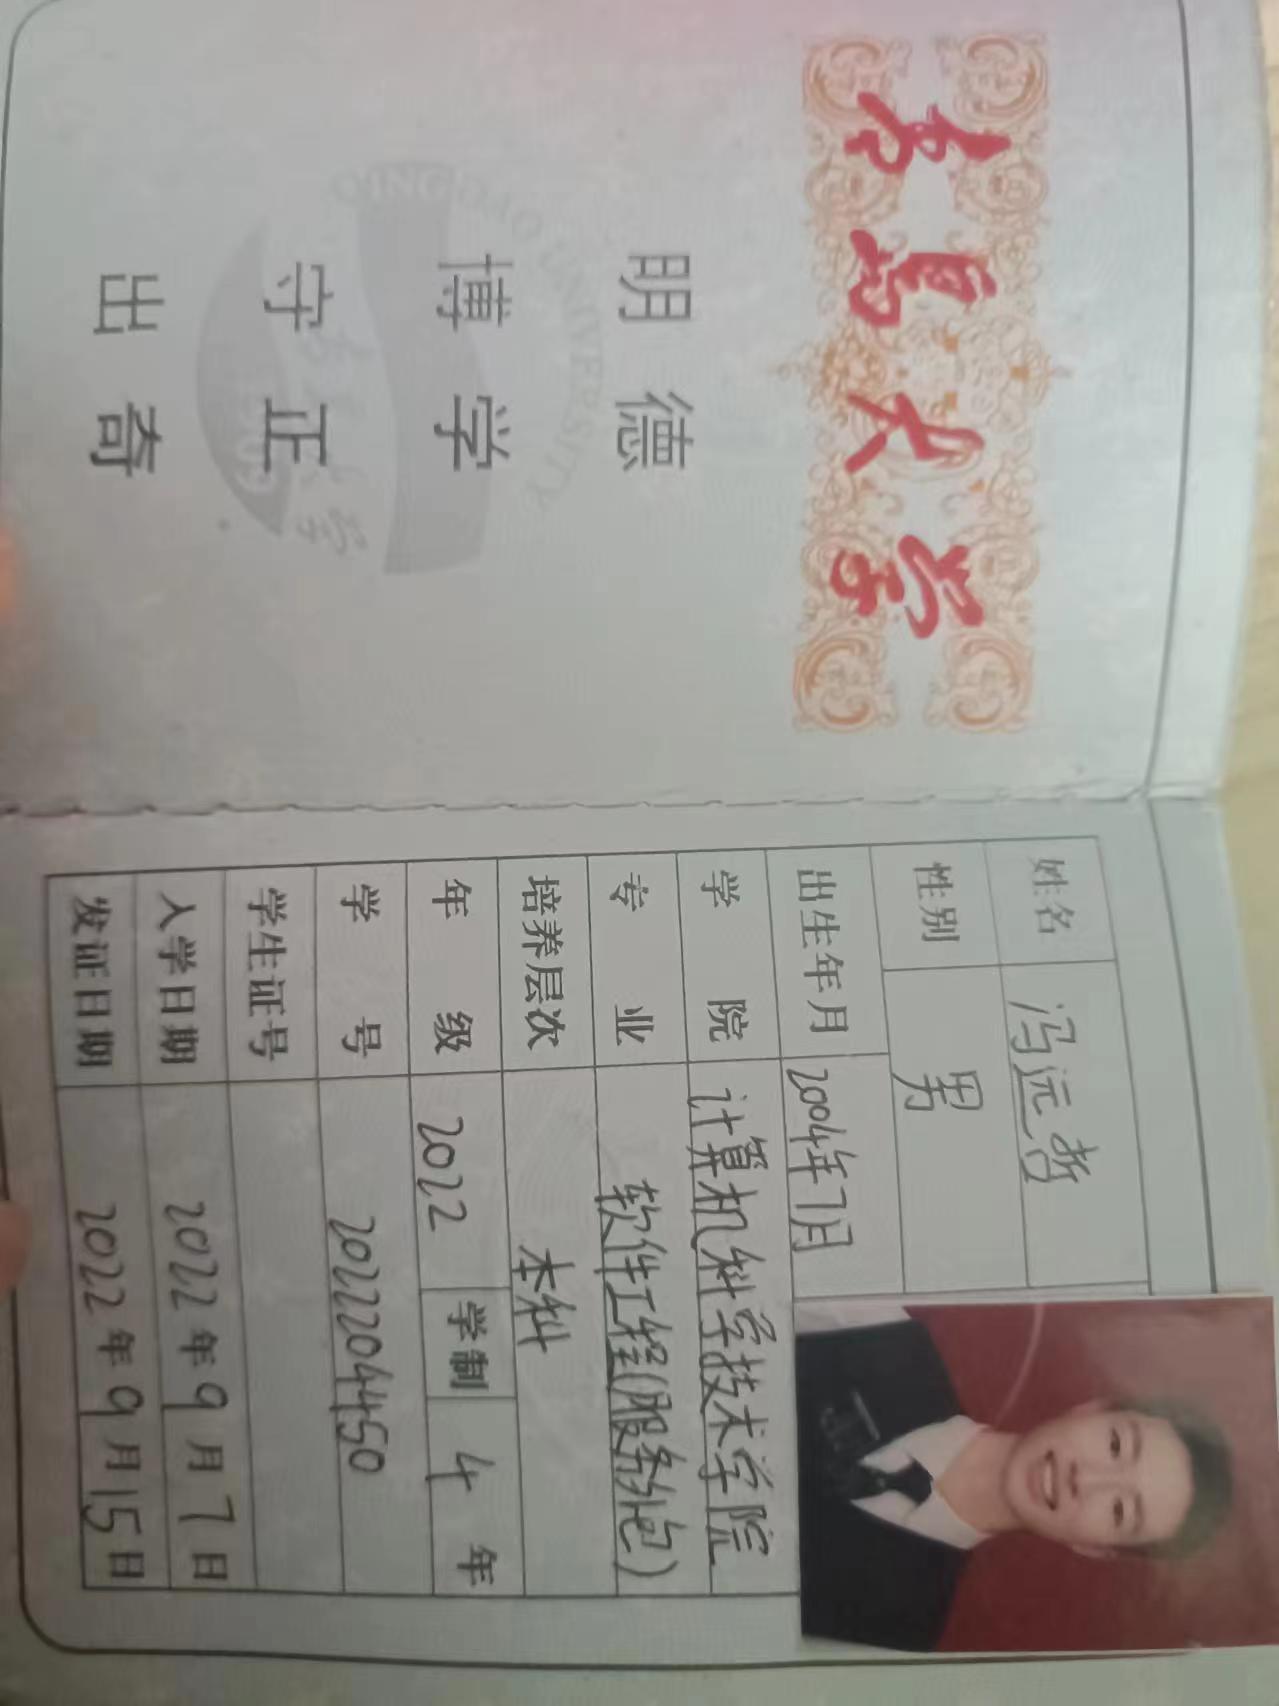 青岛大学
QINGDAO UNIVERSITY
明德
博学
守正
出奇
姓名 冯远哲
性别 男
出生年月 2004年7月
学院 计算机科学技术学院
专业 软件工程(服务外包)
培养层次 本科
年级 2022 学制 4年
学号 2022204450
学生证号
入学日期 2022年9月7日
发证日期 2022年9月15日